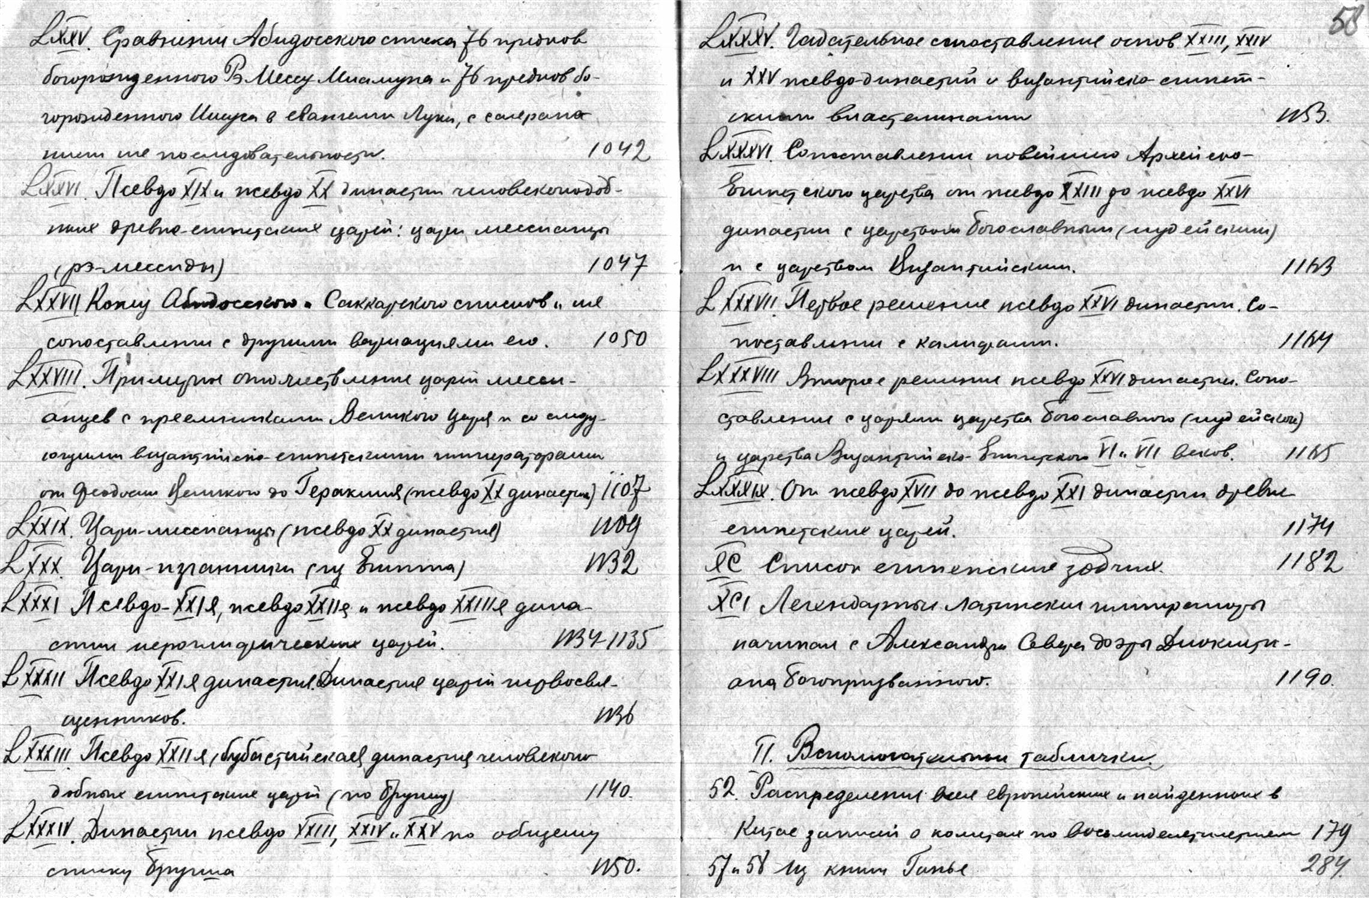 LXXV. Сравнении Абидосского списка 76 предков
богорожденного Рэ Мессу Миамуна и 76 предков бо-
горожденного Иисуса в евангелии Луки, с сохране
нием их последовательности. 1042
LXXVI. Псевдо XIX и псевдо XX династии человекоподоб-
ных древне-египетских царей: цари мессианцы
(рэ-мессиды) 1047
LXXVII Абидосского и Саккарского списков и их
сопоставлении с другими вариациями его. 1050
LXXVIII. Примерное отожествление царей месси-
анцев с преемниками Великого Царя и со следу-
ющими византийско-египетскими императорами
от Феодосия Великого до Гераклия (псевдо XX династия) 1107
LXXIX. Цари-мессианцы (псевдо XX династия) 1109
LXXX. Цари-изгнанники (из Египта) 1132
LXXXI Псевдо-XXIя, псевдо XXIIя и псевдо XXIIIя дина-
стии иероглифических царей. 1134-1135
LXXXII Псевдо XXIя династия. Династия царей первосвя-
щенников. 1136
LXXXIII. Псевдо XXIIя (бубастийская) династия человекопо
добных египетских царей (по Бругшу) 1140.
LXXXIV. Династии псевдо XXIII, XXIV и XXV по общему
списку Бругша 1150.
58
LXXXV. Гадательное сопоставление основ XXIII, XXIV
и XXV псевдо-династий с византийско-египет-
скими властелинами 1153.
LXXXVI. Сопоставлении новейшего
Египетского царства от псевдо XXIII до псевдо XXVI
династии с царством богославным (иудейским)
и с царством Византийским. 1163
LXXXVII. Первое решение псевдо XXVI династии. Со-
поставлении с калифами. 1164
LXXXVIII Второе решение псевдо XXVI династии. Сопо-
ставлении с царями царства богославного (иудейского)
и царства Византийско-Египетского VI и VII веков. 1165
LXXXIX. От псевдо XVII до псевдо XXI династии древне
египетских царей. 1174
XC Список египетских зодчих 1182
XCI Легендарные латинские императоры
начиная с Александра Севера до эры Диоклети-
ана богопризванного. 1190.
II. Вспомогательные таблички.
52. Распределения всех европейских и найденных в
Китае записей о кометах по восьмидесятилетиям 179
57 и 58 Из книги Ганье 284.